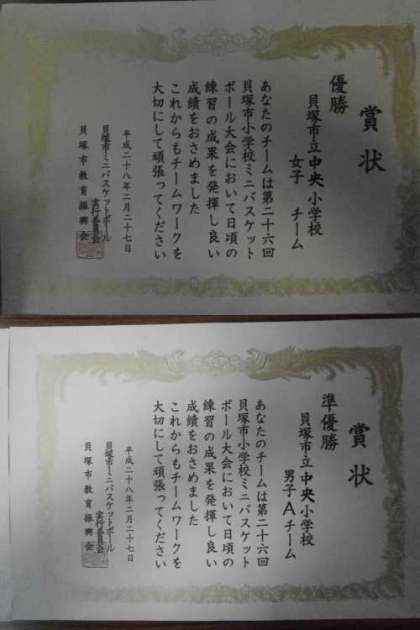 賞状
優勝
貝塚市立中央小学校
女子 チーム
あなたのチームは第二十六回
貝塚市小学校ミニバスケット
ボール大会において日頃の
練習の成果を発揮し良い
成績をおさめました
これからもチームワークを
大切にして頑張ってください
平成二十八年二月二十七日
貝塚市ミニバスケットボール
実行委員会
貝塚市教育振興会
賞状
準優勝
貝塚市立中央小学校
男子Aチーム
あなたのチームは第二十六回
貝塚市小学校ミニバスケット
ボール大会において日頃の
練習の成果を発揮し良い
成績をおさめました
これからもチームワークを
大切にして頑張ってください
平成二十八年二月二十七日
貝塚市ミニバスケットボール
実行委員会
貝塚市教育振興会